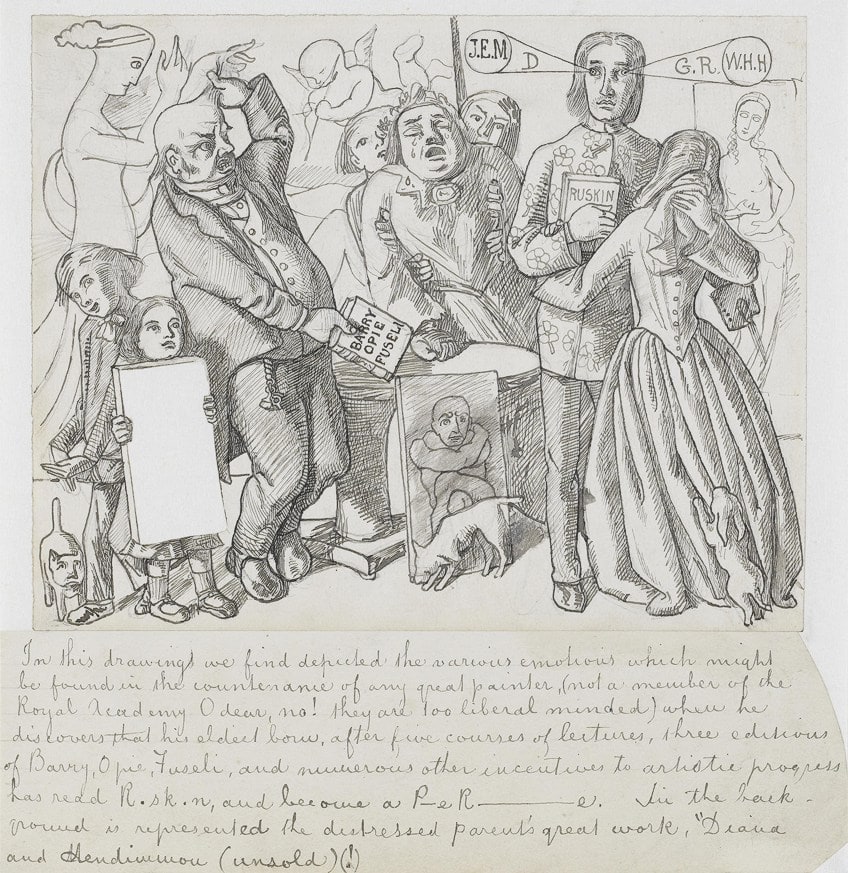 J.E.M
D
G.R.
W.H.H
RUSKIN
BARRY
OPIE
FUSELI
In this drawings we find depicted the various emotions which might
be found in the countenance of any great painter, (not a member of the
Royal Academy O dear, no! they are too liberal minded) when he
discovers that his eldest born, after five courses of lectures, three editions
of Barry, Opie, Fuseli, and numerous other incentives to artistic progress
has read R.sk.n, and become a P–eR———e. In the back-
ground is represented the distressed parent's great work, "Diana
and Hendimmon (unsold)(!)